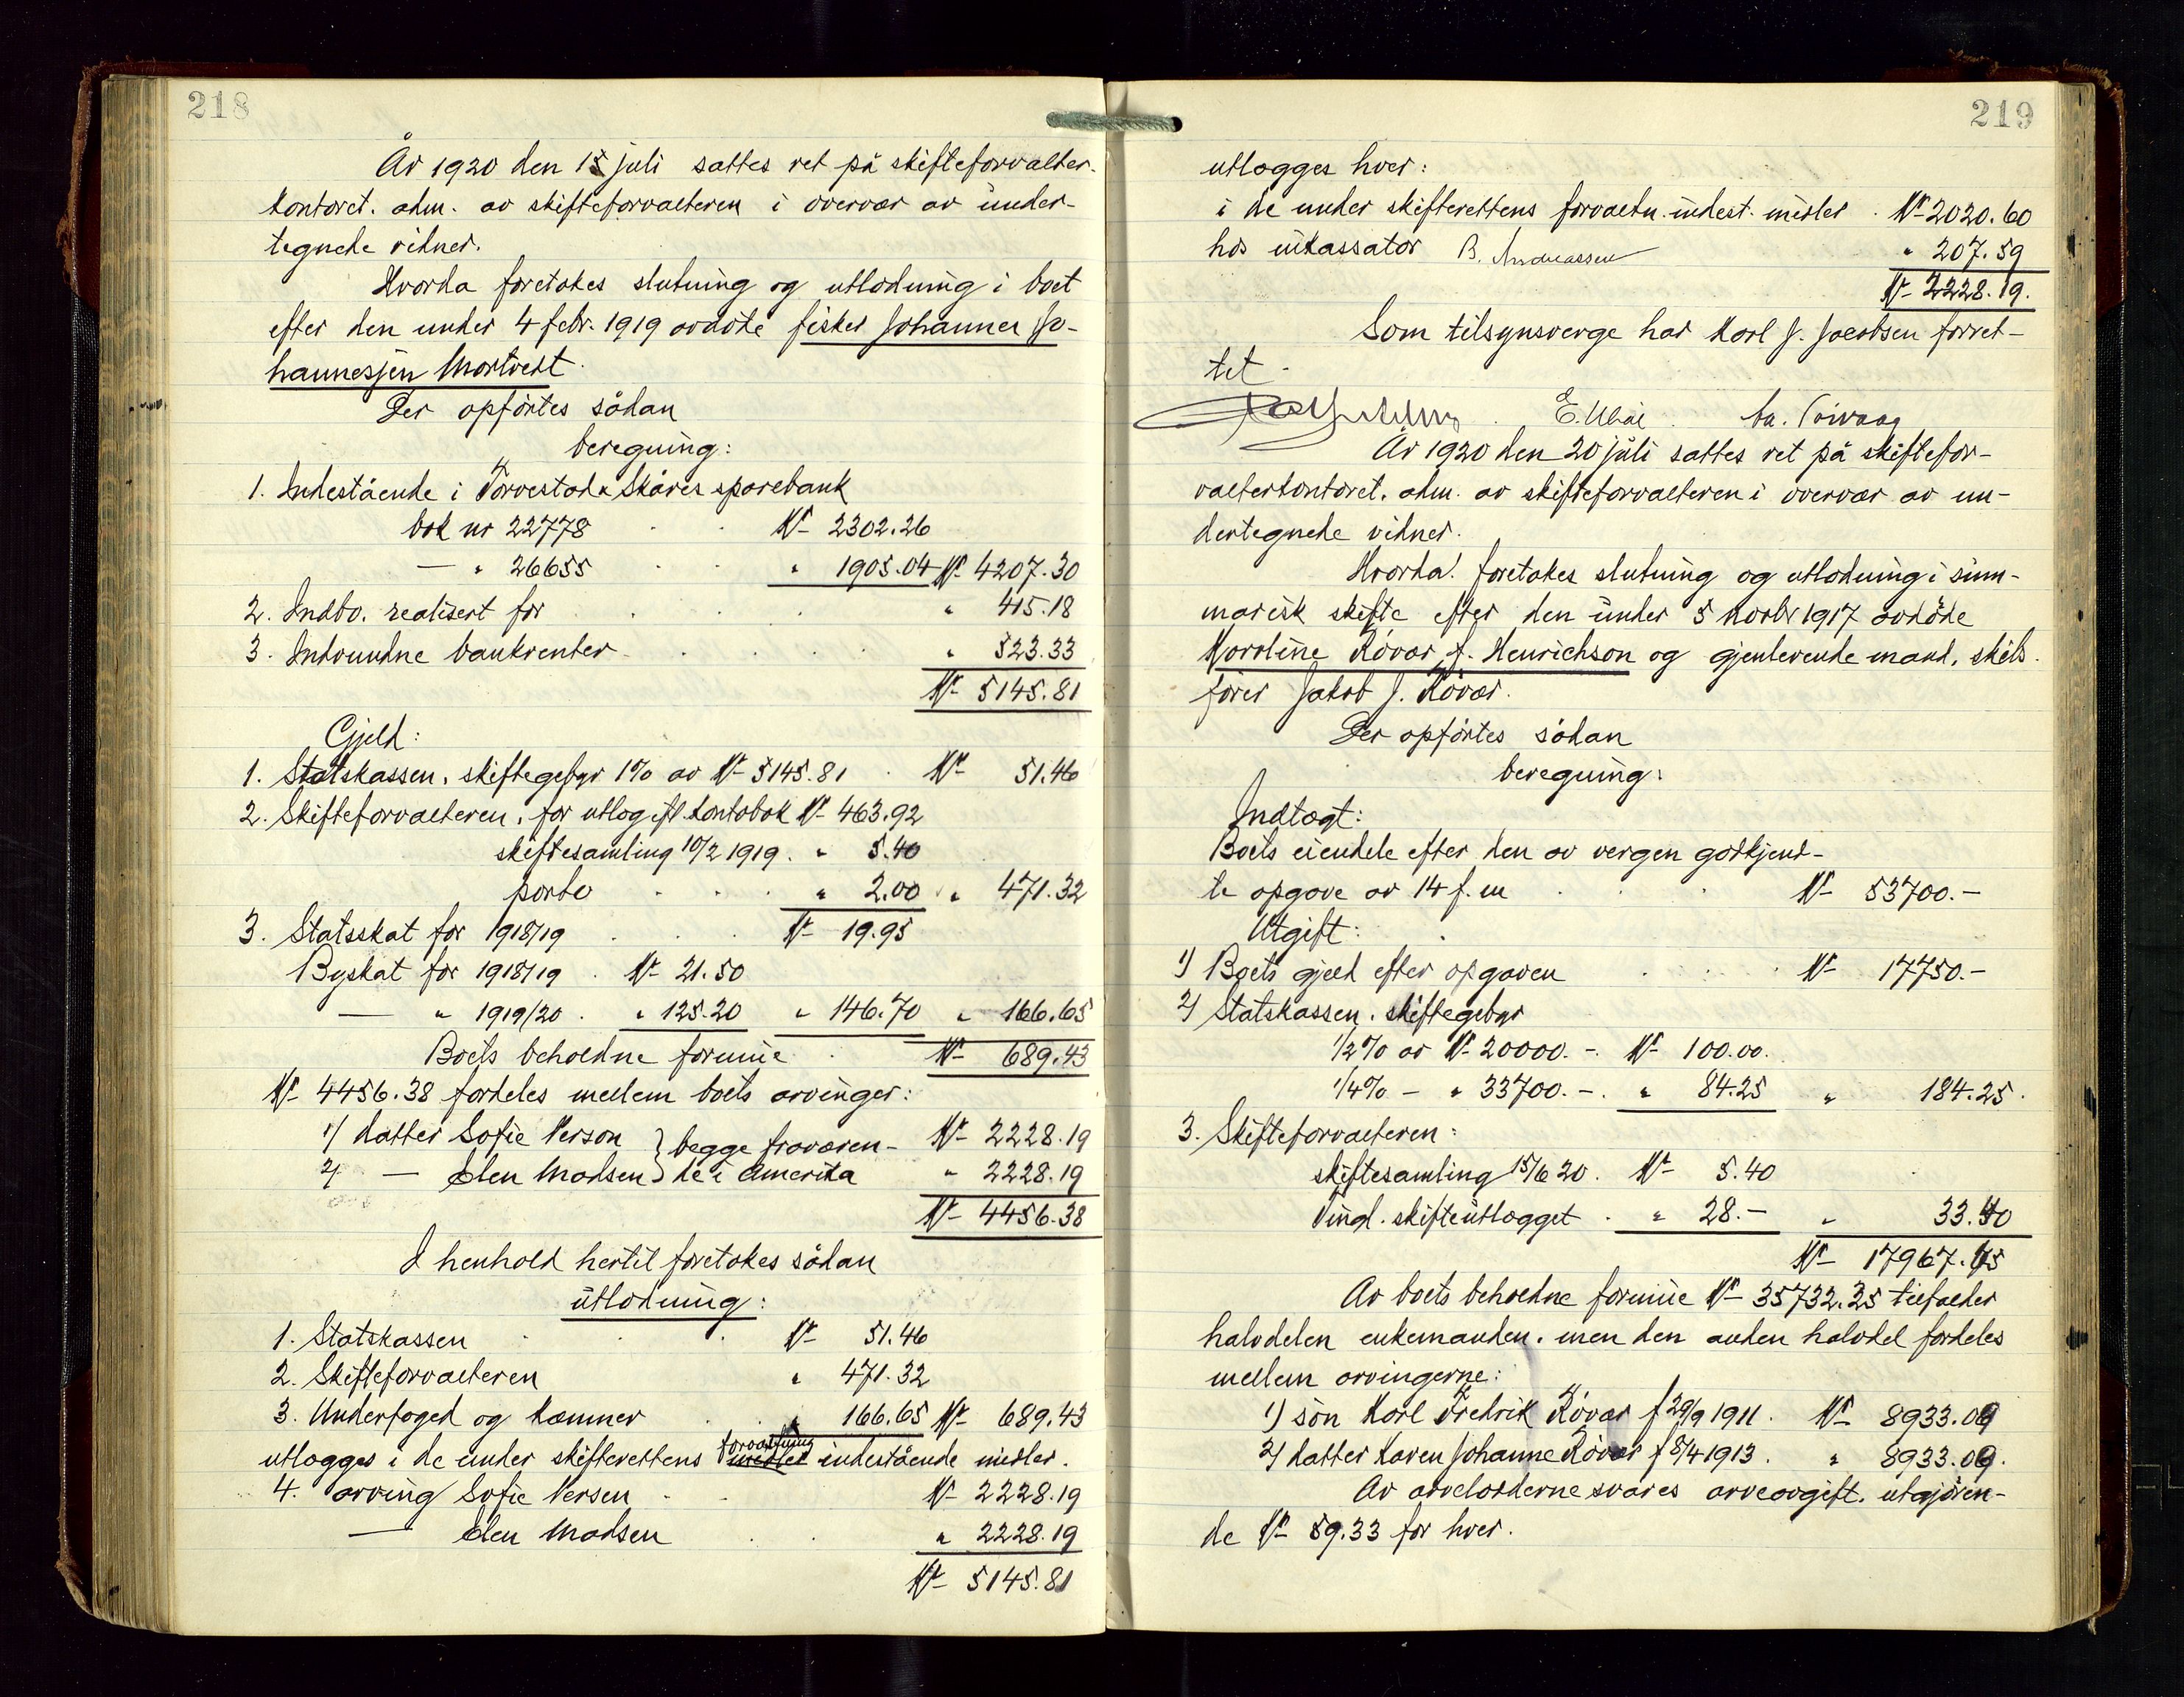 218
År 1920 den 15 juli sattes ret på skifteforvalter-
kontoret, adm. av skifteforvalteren i overvær av under-
tegnede vidner.
Hvorda foretokes slutning og utlodning i boet
efter den under 4 febr. 1919 avdöde fisker Johannes Jo-
hannesjen Mortvedt.
Der opförtes sådan
beregning:
1. Indestående i Torvestad & Skåres sparebank
bok nr 22778 . . Kr 2302.26
— " 26655 . . " 1905.04 Kr 4207.30
2. Indbo, realisert for . . . " 415.18
3. Indvundne bankrenter . . . . " 523.33
Kr 5145.81
Gjeld:
1. Statskassen, skiftegebyr 1% av Kr 5145.81 . Kr 51.46
2. Skifteforvalteren, for utlæg ifl. kontobok Kr 463.92
skiftesamling 10/2 1919. " 5.40
porto . . . " 2.00 " 471.32
3. Statsskat for 1918/19 . . . Kr 19.95
Byskat for 1918/19 . Kr 21.50
— " 1919/20 . " 125.20 " 146.70 " 166.65
Boets beholdne formue . Kr 689.43
Kr 4456.38 fordeles mellem boets arvinger:
1) datter Sofie Verson } begge fraværen- Kr 2228.19
2) — Elen Madsen } de i Amerika " 2228.19
Kr 4456.38
I henhold hertil foretokes sådan
utlodning:
1. Statskassen . . . Kr 51.46
2. Skifteforvalteren " 471.32
3. Underfoged og kæmner . . " 166.65 Kr 689.43
utlægges i de under skifterettens forvaltning indestående midler.
4. arving Sofie Versen . . Kr 2228.19
— Elen Madsen . . " 2228.19
Kr 5145.81
219
utlægges hver:
i de under skifterettens forvaltn. indest. midler . Kr 2020.60
hos inkassator B. Andreassen " 207.59
Kr 2228.19.
Som tilsynsverge har Karl J. Jacobsen forret-
tet.
År 1920 den 20 juli sattes ret på skiftefor-
valterkontoret, adm. av skifteforvalteren i overvær av un-
dertegnede vidner.
Hvorda! foretokes slutning og utlodning i sum-
marisk skifte efter den under 5 novbr 1917 avdöde
Noroline Rövær, f. Henrichson og gjenlevende mand, skibs-
förer Jakob J. Rövær.
Der opförtes sådan
beregning:
Indtægt:
Boets eiendele efter den av vergen godkjend-
te opgave av 14 f. m . . Kr 53700.-
Utgift:
1) Boets gjeld efter opgaven . . . . Kr 17750.-
2) Statskassen, skiftegebyr
1/2% av Kr 20000.-. Kr 100.00.
1/4% - " 33700.-. " 84.25 " 184.25.
3. Skifteforvalteren:
skiftesamling 15/6 20. Kr 5.40
Tingl. skifteutlægget . " 28.- " 33.40
Kr 17967.75
Av boets beholdne formue Kr 35732.35 tilfalder
halvdelen enkemanden, men den anden halvdel fordeles
mellem arvingerne:
1) sön Karl Fredrik Rövær f 29/9 1911. Kr 8933.09
2) datter Karen Johanne Rövær f 8/4 1913. " 8933.09.
Av arvelodderne svares arveavgift, utgjören-
de Kr 89.33 for hver.